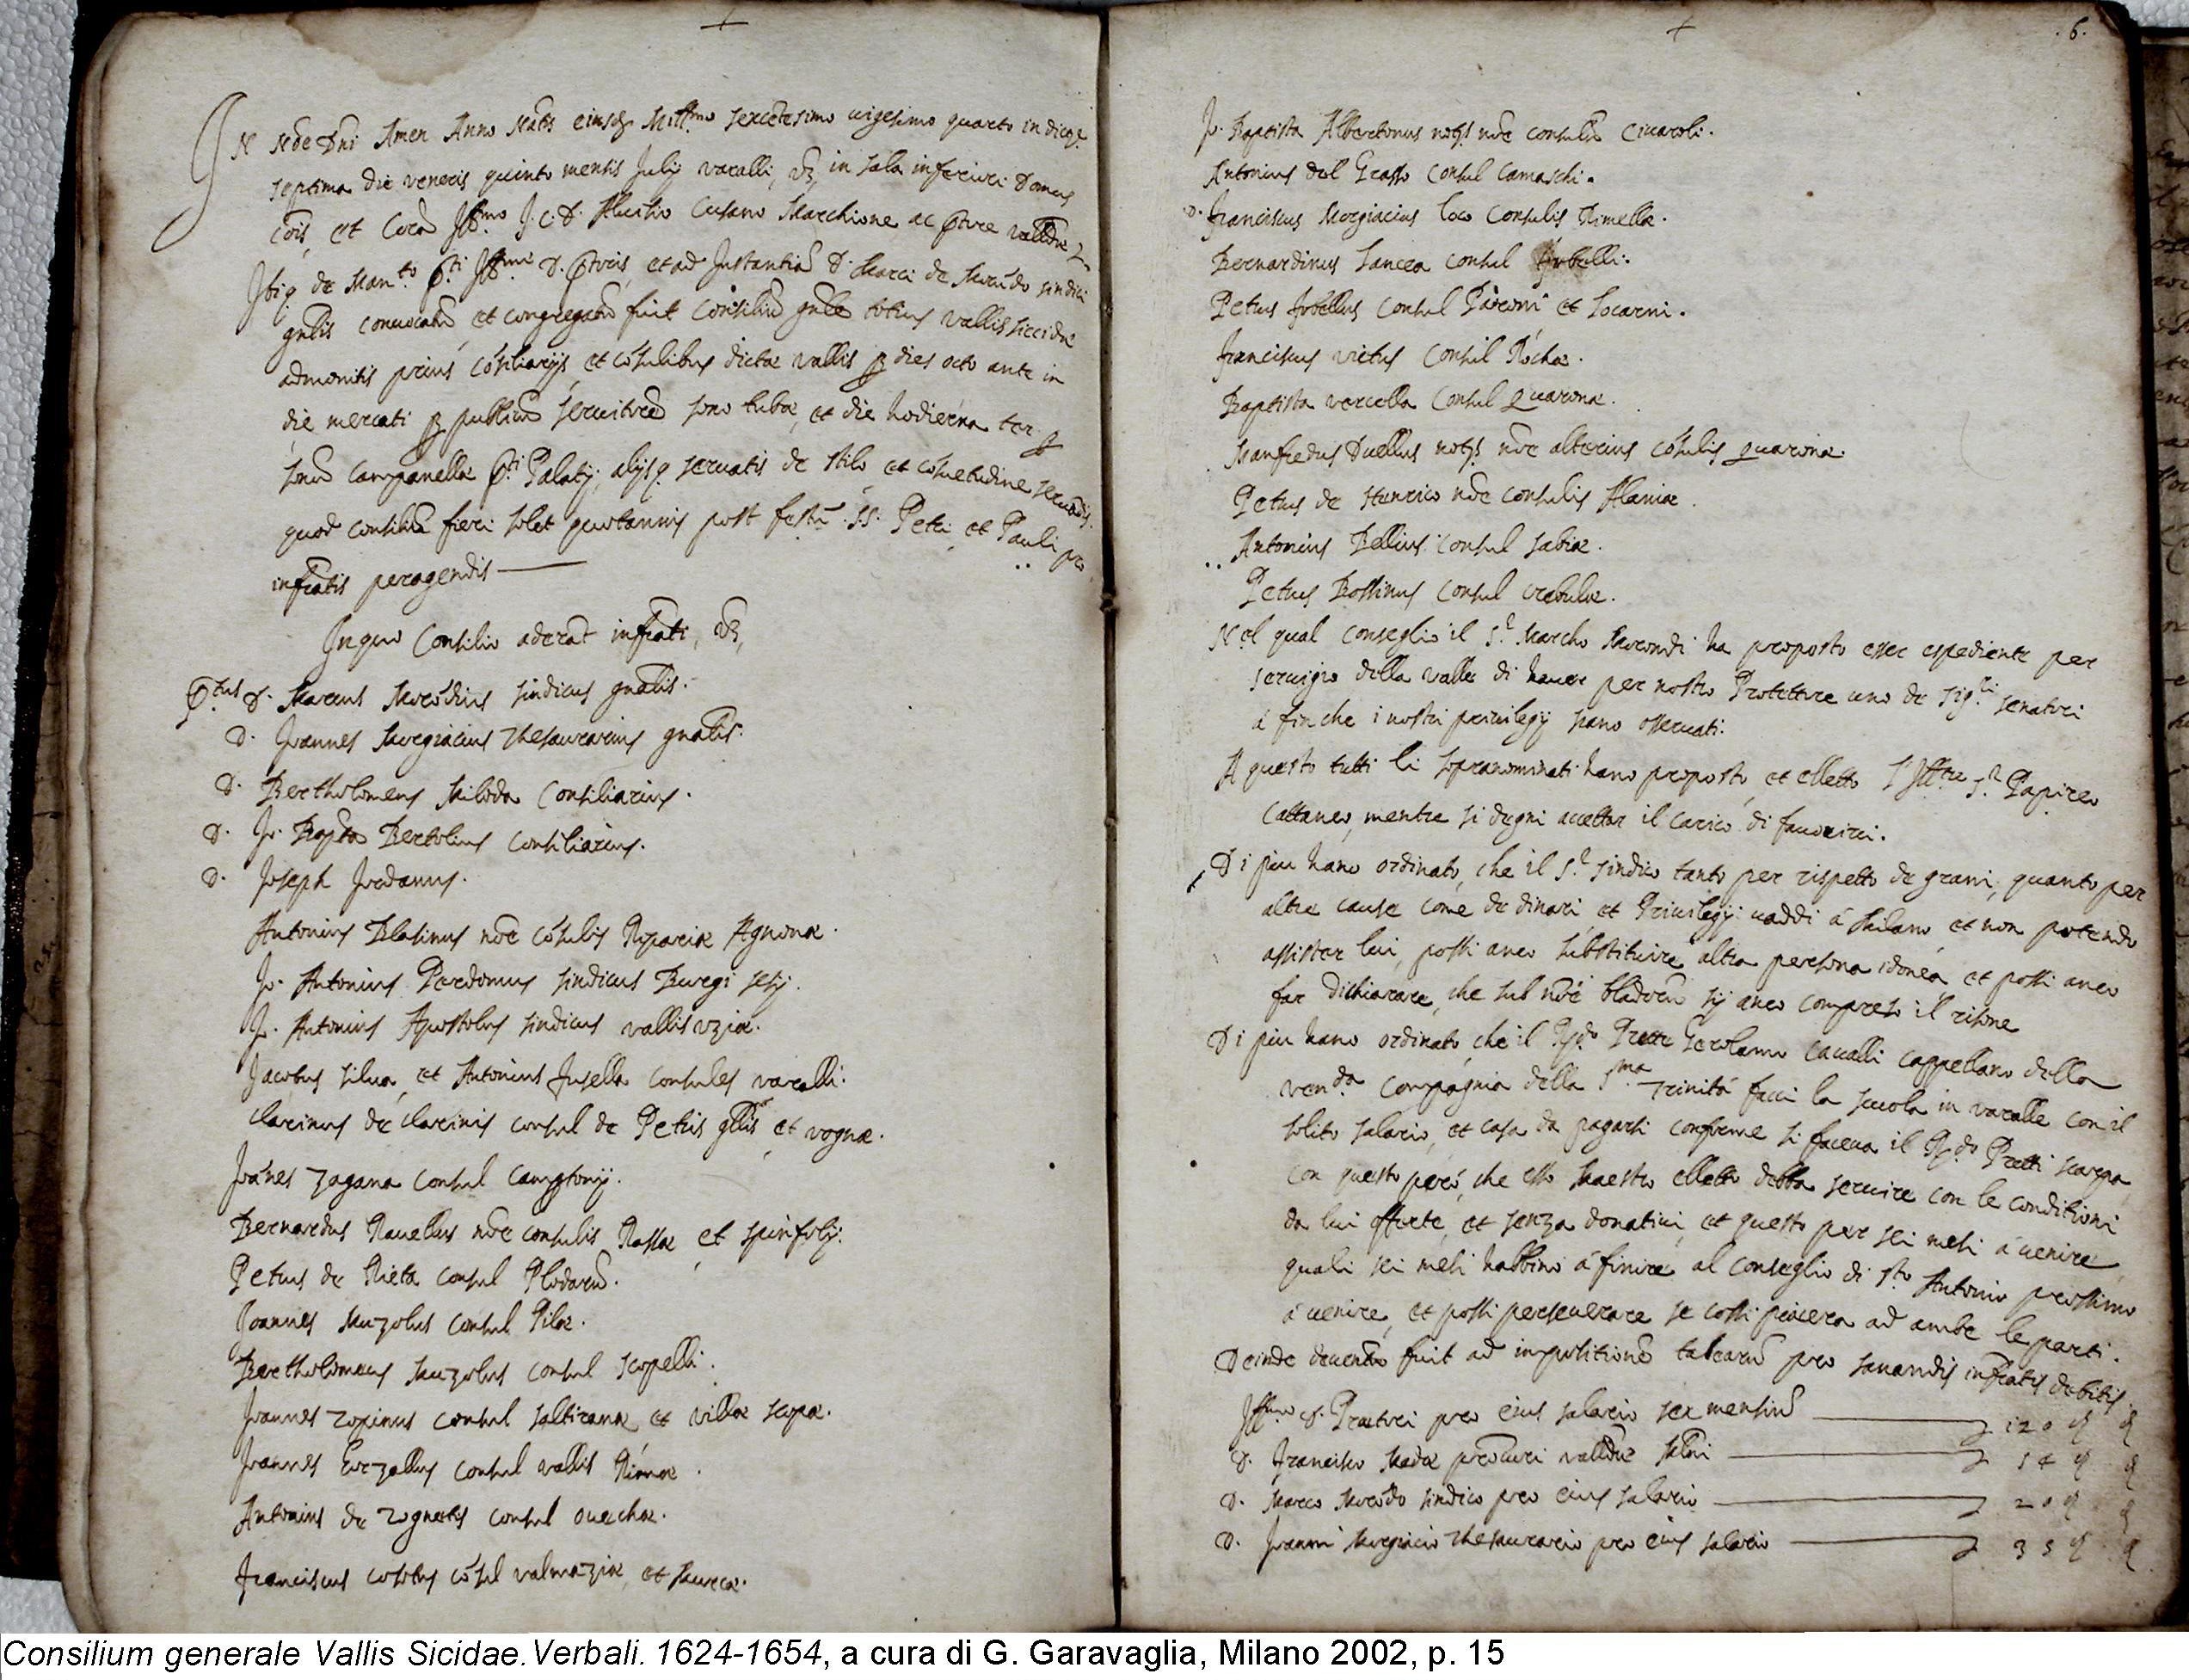 +
IN Nõe Dñi Amen Anno Natis eiusdẽ Mill.mo sexcẽtesimo uigesimo quarto indicẽ
septima die veneris quinto mensis Julij varalli, vz, in sala inferiori Domus
cõis, et Corã Ill.mo J.C.D. Cusano Marchione ac ptore
Ibiq de Man.to p.ti Ill.mi D. ptoris, et ad Instantiã D. Marci de Morõdo sindici
gnãlis conuocatũ, et congregatũ fuit Consiliũ gñle totius vallis siccidæ
admonitis prius cõsiliarijs, et cõsulibus dictæ vallis p dies octo ante in
die mercati p publicũ seruitorẽ sono tubæ, et die hodierna ter p
sonũ campanellæ p.ti Palatij, alijsq seruatis de stilo, et cõsuetudine seruãdis.
quod consiliũ fieri solet quotannis post festũ SS. Petri et Pauli pro
infrãtis peragendis
In quo Consilio aderãt infrãti, vz,
P.tus D. Marcus Morõdius sindicus gnãlis.
D. Joannes Morgiacius Thesaurarius gnãlis.
D. Bertholomeus Miloda Consiliarius.
D. Jo. Bapta Bertolius Consiliarius.
D. Joseph Jordanus.
Antonius Blasinus nõe cõsulis Ripariæ Agnonæ.
Jo. Antonius Perdomus sindicus Burgi sesij.
Jo. Antonius Apostolus sindicus vallis vziæ.
Jacobus silua, et Antonius Jusella Consules varalli.
Clarinus de Clarinis consul de Petris gllis, et vognæ.
Joãnes Zagana Consul Campertonij.
Bernardus Rauellus nõe consulis Rassæ, et
Petrus de Rieta consul Plodarũ.
Joannes Muzolus consul Pilæ.
Bertholomeus Muzolus consul scopelli.
Joannes Topinus consul saltiranæ et villæ scopæ.
Joannes consul vallis Rimæ.
Antonius de Zognetis consul ouachæ.
Franciscus cõsul valmaziæ, et Maureæ.
+
.6.
Jo. Baptista Albertonus notus nõe consulis Ciuaroli.
Antonius del Grasso consul Camaschi.
D. Franciscus Morgiacius loco Consulis Rimellæ.
Bernardinus Lancea consul
Petrus consul Parconi et Locarni.
Franciscus vietus consul Rochæ.
Baptista vercella Consul quaronæ.
Manfredus Duellus notus nõe alterius cõsulis quaronæ.
Petrus de Henrico nõe consulis Maniæ.
Antonius Bellius consul sabiæ.
Petrus Rossinus consul
Nel qual conseglio il S.r Marcho Morondi ha proposto esser espediente per
seruigio della valle di hauer per nostro Protettore uno de sig.ri senatori
à fin che i nostri priuilegij siano osseruati.
A questo tutti li sopranominati hano proposto, et elletto l'Ill.tre S.r Papireo
Cattaneo, mentre si degni accettar il carico di fauorirci.
Di piu hano ordinato, che il S.r sindico tanto per rispetto de grani, quanto per
altre cause come de dinari, et Priuilegij uaddi à Milano, et non potendo
assister lui, possi anco substituire altra persona idonea, et possi anco
far dichiarare, che sub nõe bladorũ sij anco compreso il risone
Di piu hano ordinato, che il R.do Prette Gerolamo Caualli cappellano della
ven.da Compagnia della S.ma Trinità facci la scuola in varalle con il
solito salario, et casa da pagarsi conforme si faceua il R.do Prette scarpa,
con questo però, che esso Maestro elletto debba seruire con le conditioni
da lui offerte, et senza donatiui, et questo per sei mesi à uenire,
quali sei mesi habbino à finire al conseglio di S.to Antonio prossimo
à uenire, et possi perseuerare se cossi piacera ad ambe le parti.
Deinde deuentũ fuit ad impositionẽ talearũ pro soluendis infrãtis debitis.
Ill.mo D. Prætori pro eius salario sex mensiũ 120
D. Francisco Madæ procuri 54
D. Marco Morõdo sindico pro eius salario 20
D. Joanni Morgiacio Thesaurario pro eius salario 35
Consilium generale Vallis Sicidae. Verbali. 1624-1654, a cura di G. Garavaglia, Milano 2002, p. 15